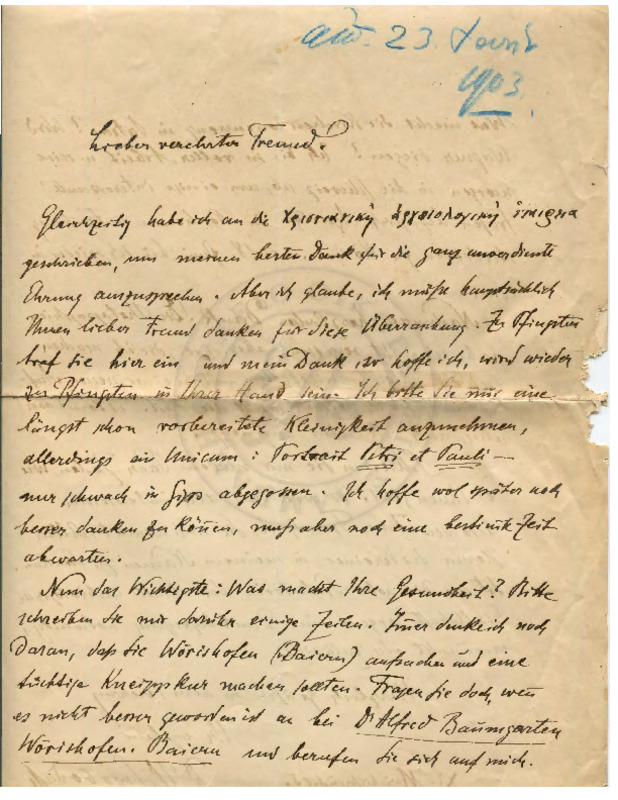 23
1903.
Lieber verehrter Freund.
Gleichzeitig habe ich an die Χριστιανικὴ ἀρχαιολογικὴ ἑταιρία
geschrieben, um meinen besten Dank für die ganz unverdiente
Ehrung auszusprechen. Aber ich glaube, ich müsse hauptsächlich
Ihnen lieber Freund danken für diese Überraschung. Zu Pfingsten
traf sie hier ein und mein Dank, so hoffe ich, wird wieder
zu Pfingsten in Ihrer Hand sein. Ich bitte Sie nur eine
längst schon vorbereitete Kleinigkeit anzunehmen,
allerdings ein Unicum: Portrait Petri et Pauli —
nur schwach in Gips abgegossen. Ich hoffe wol später noch
besser danken zu können, muß aber noch eine bestimmte Zeit
abwarten.
Nun das Wichtigste: Was macht Ihre Gesundheit? Bitte
schreiben Sie mir darüber einige Zeilen. Immer denke ich noch
daran, daß Sie Wörishofen (Baiern) aufsuchen und eine
tüchtige Kneippkur machen sollten. Fragen Sie doch, wenn
es nicht besser geworden ist an bei Dr Alfred Baumgarten
Wörishofen. Baiern und berufen Sie sich auf mich.